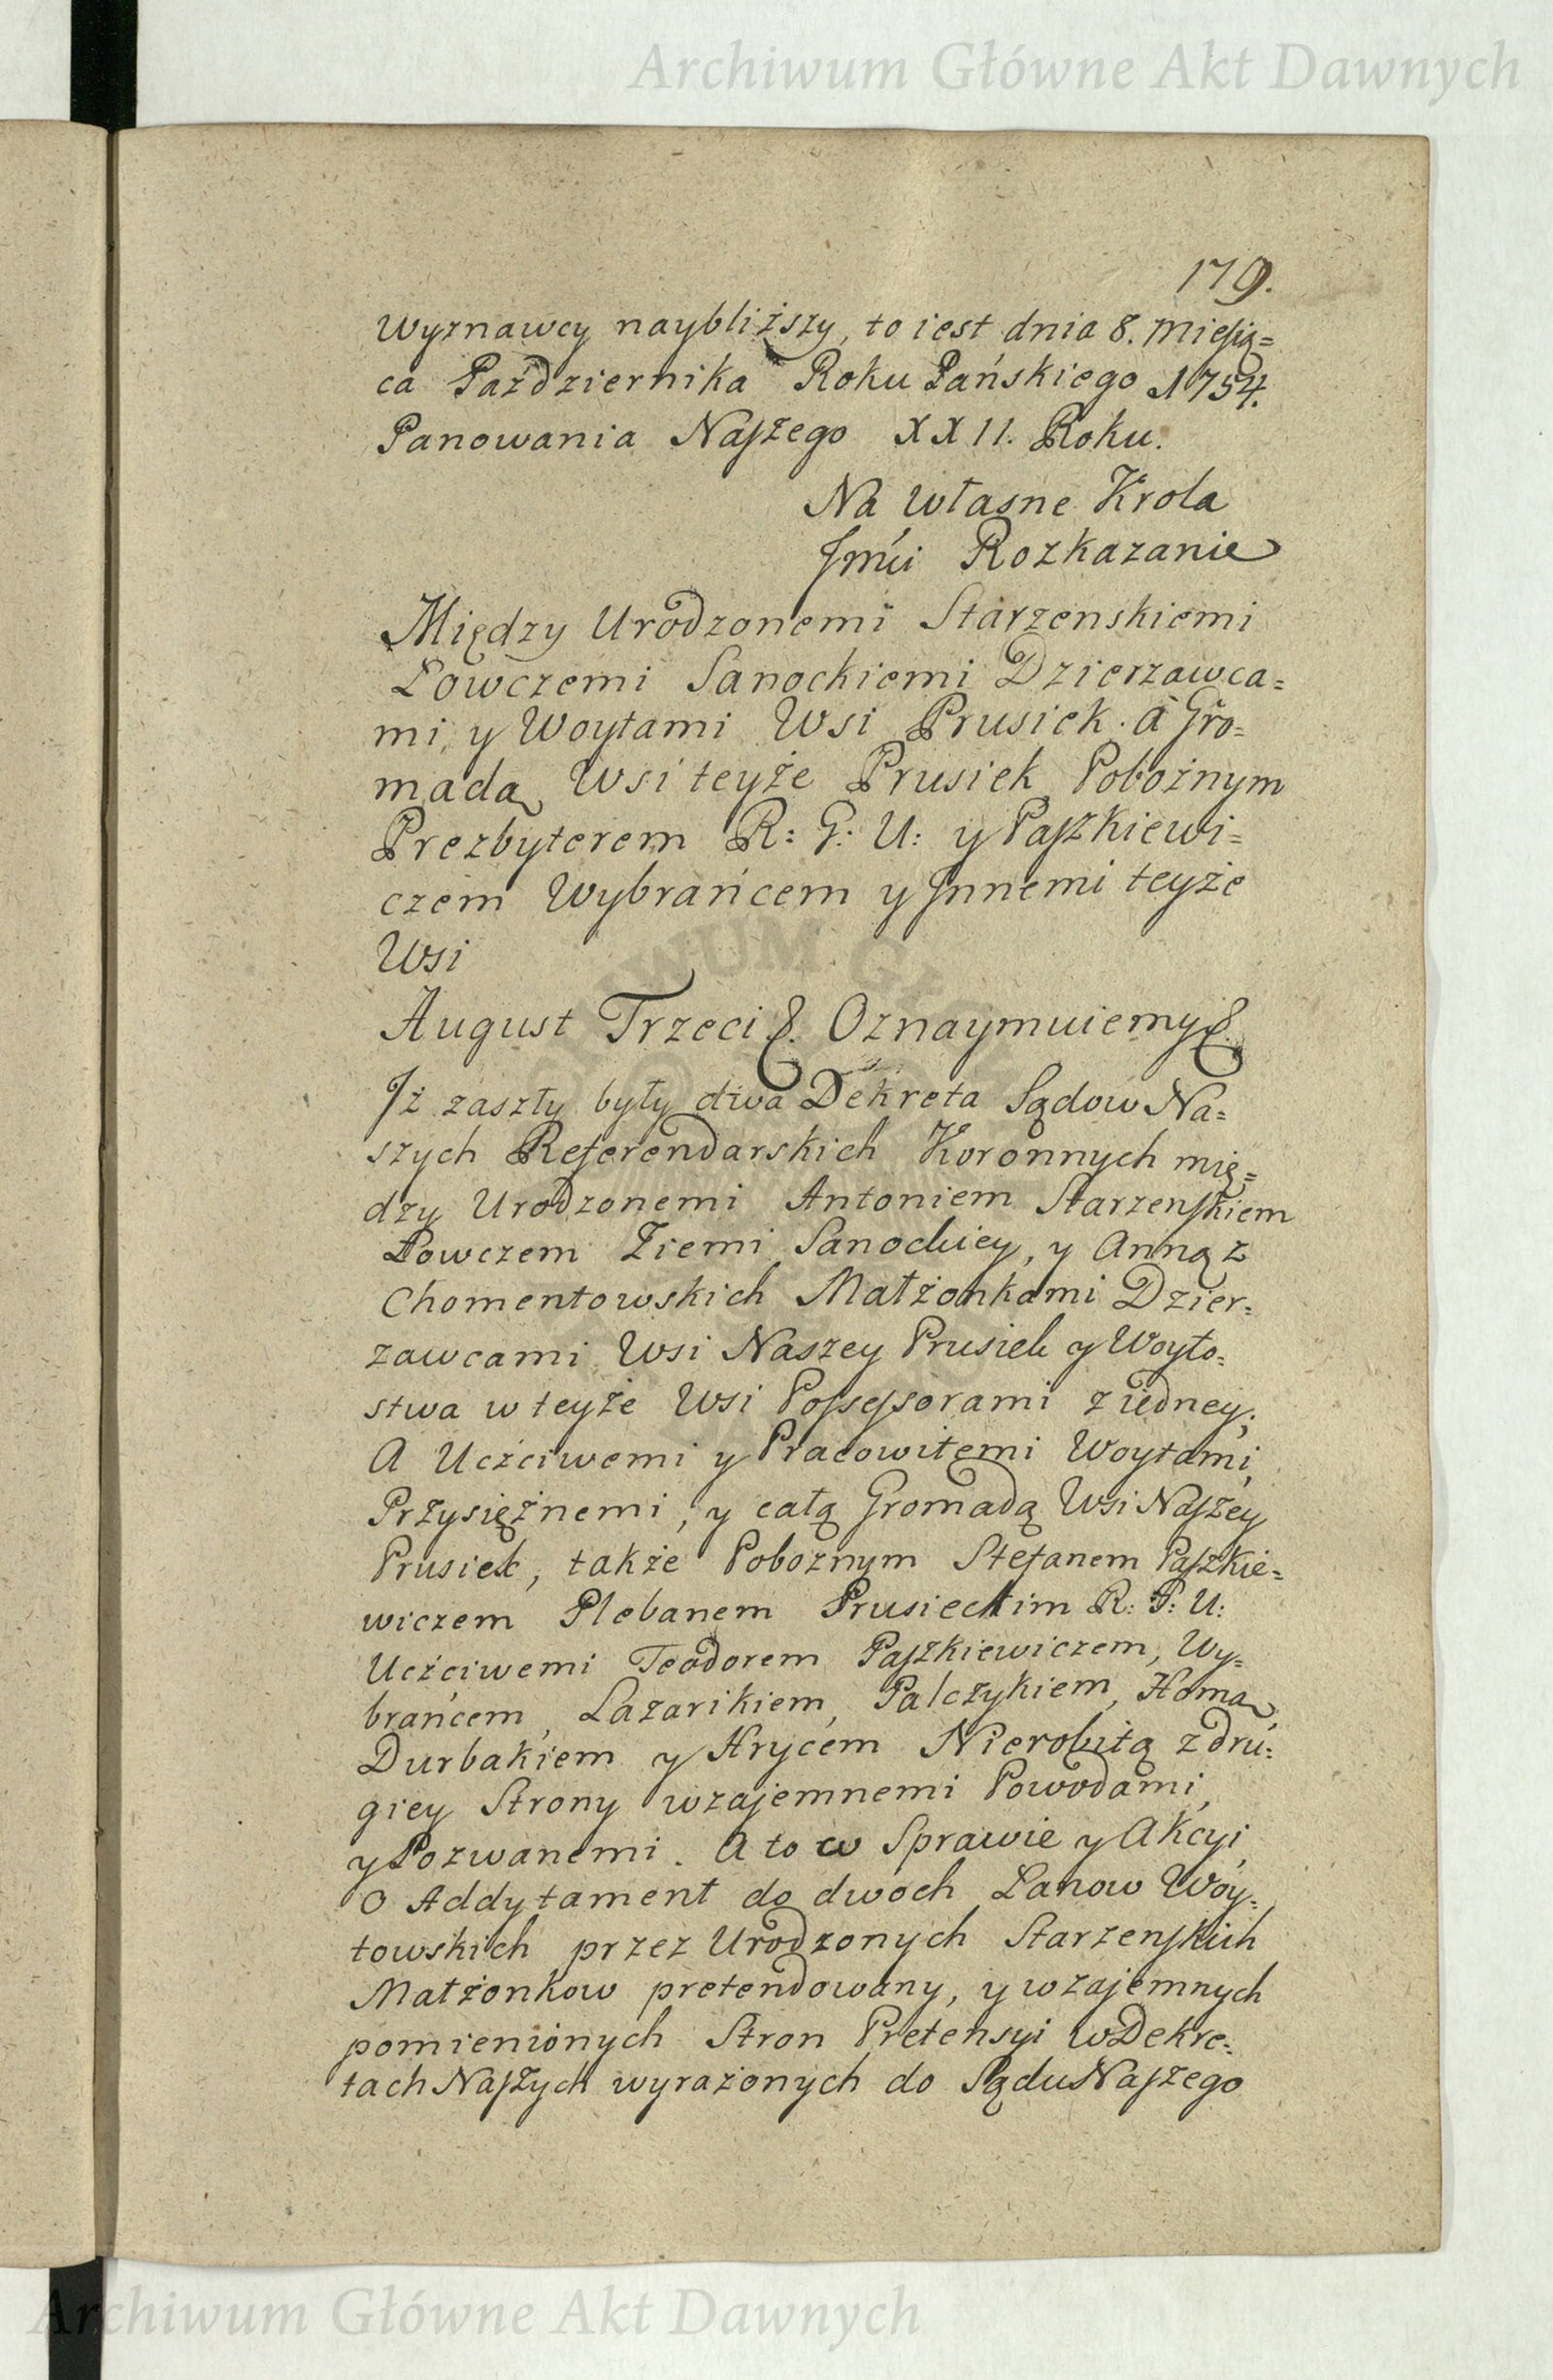 Archiwum Główne Akt Dawnych
179.
Wyznawcy naybliższy, to iest dnia 8. Miesią=
ca Październiķa Roku Pańskiego 1754.
Panowania Naszego XXII. Roku.
Na własne Krola
Jmći Rozkazanie
Między Urodzonemi Starzenskiemi
Łowczemi Sanockiemi Dzierzawca=
mi, y Woytami Wsi Prusiek. á Gro=
madą Wsi teyże Prusiek, Pobożnym
Prezbyterem R: G: U: y Paszkiewi=
czem Wybrańcem y Jnnemi teyże
Wsi
August Trzeci &. Oznaymuiemy &.
Jż zaszły były dwa Dekreta Sądow Na=
szych Referendarskich Koronnych mię=
dzy Urodzonemi Antoniem Starzenskiem
Łowczem Ziemi Sanockiey, y Anną z
Chomentowskich Małżonkami Dzier=
zawcami Wsi Naszey Prusiek y Woyto=
stwa w teyże Wsi Possessorami z iedney;
A Uczciwemi y Pracowitemi Woytami,
Przysiężnemi, y całą Gromadą Wsi Naszey
Prusiek, także Pobożnym Stefanem Paszkie=
wiczem Plebanem Prusieckim R: G: U:
Uczciwemi Teodorem Paszkiewiczem, Wy=
brańcem, Lazarikiem, Palczykiem, Homą,
Durbakiem y Hrycem Nierobitą z dru=
giey Strony wzajemnemi Powodami,
y Pozwanemi. A to w Sprawie y Akcyi,
o Addytament do dwoch Łanow Woy=
towskich przez Urodzonych Starzenskich
Małżonkow pretendowany, y wzajemnych
pomienionych Stron Pretensyi w Dekre=
tach Naszych wyrażonych do Sądu Naszego
Archiwum Główne Akt Dawnych